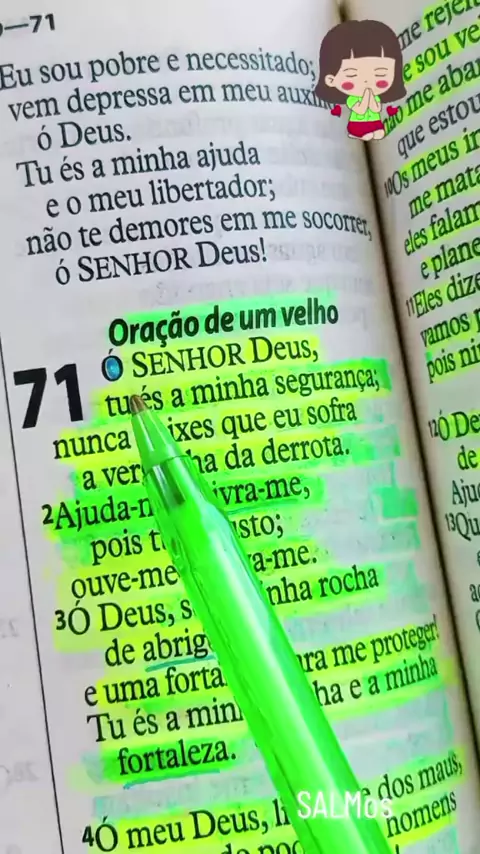 —71
Eu sou pobre e necessitado;
vem depressa em meu
ó Deus.
Tu és a minha ajuda
e o meu libertador;
não te demores em me socorrer,
ó SENHOR Deus!
Oração de um velho
71 Ó SENHOR Deus,
tu és a minha segurança;
nunca ixes que eu sofra
a ver ha da derrota.
2Ajuda-m ivra-me,
pois t sto;
ouve-me va-me.
3Ó Deus, s nha rocha
de abrig
e uma forta ra me proteger!
Tu és a min ha e a minha
fortaleza.
4Ó meu Deus, li e dos maus,
homens
SALMos
me rejei
e sou vel
não me aban
que estou
10Os meus in
me mata
eles falam
e plane
11Eles dize
vamos p
pois ni
12Ó De
de
Aju
13Qu